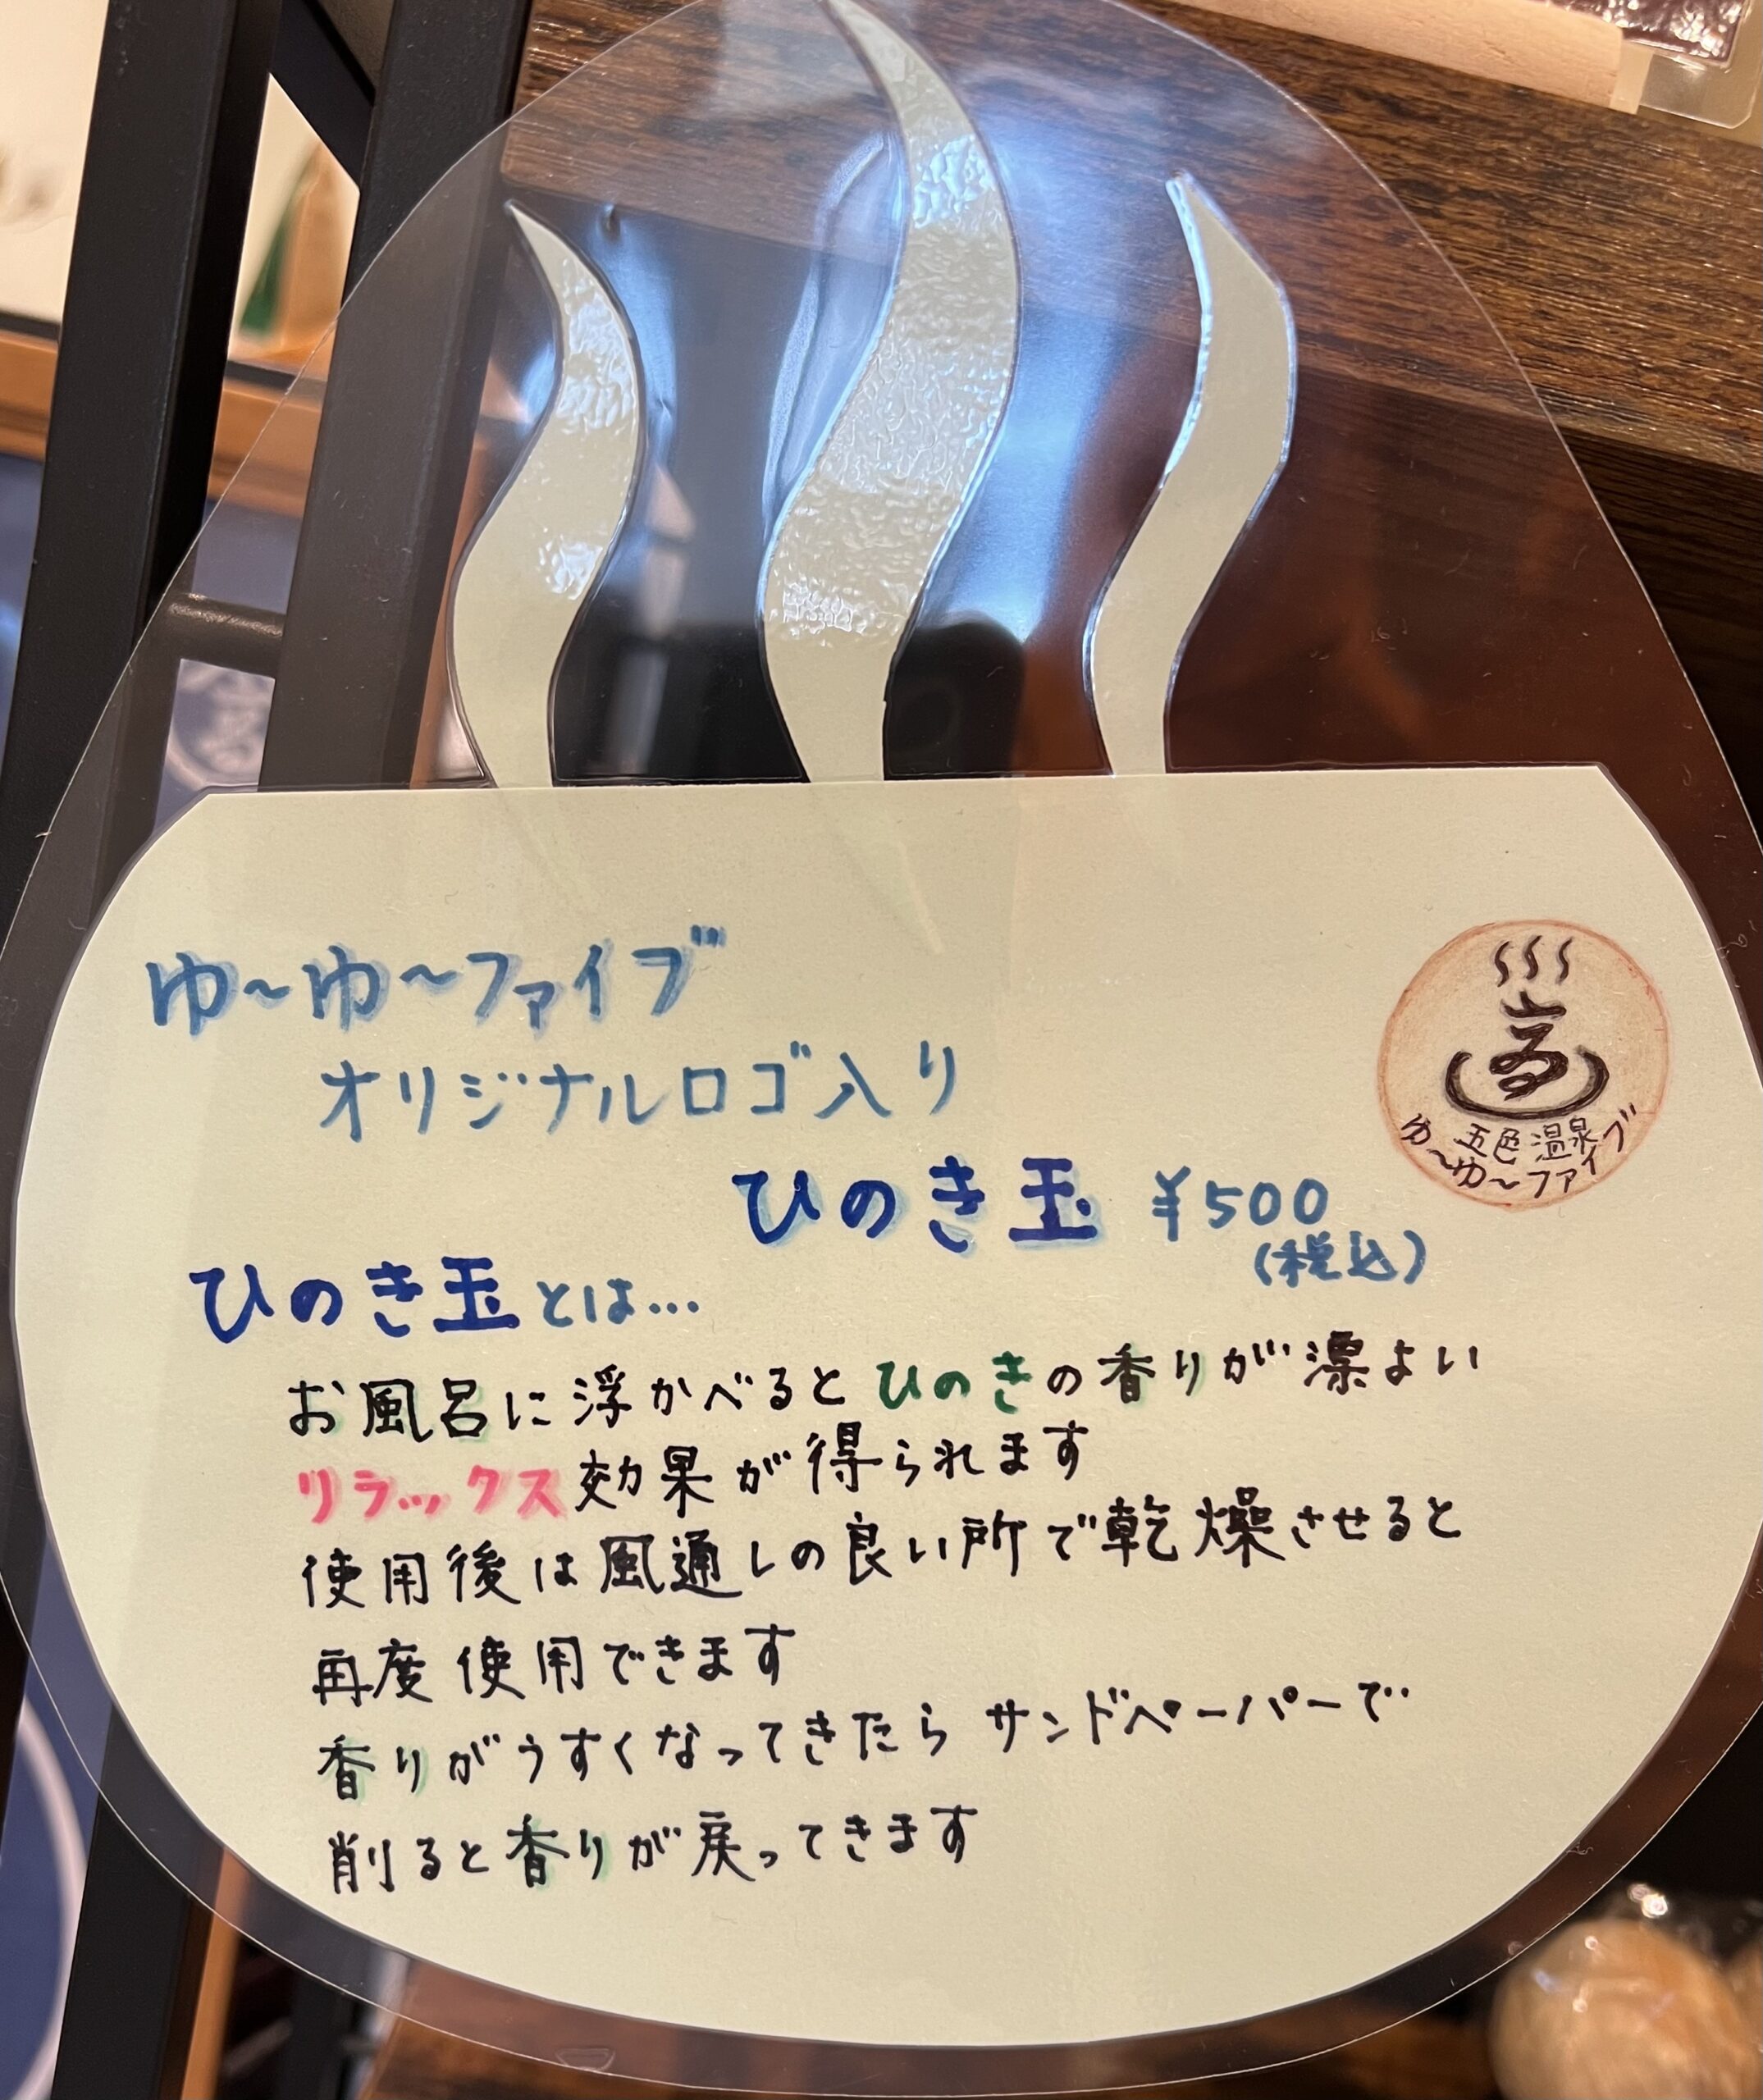 ゆ～ゆ～ファイブ
オリジナルロゴ入り
五色温泉
ゆ～ゆ～ファイブ
ひのき玉 ¥500
(税込)
ひのき玉とは…
お風呂に浮かべるとひのきの香りが漂よい
リラックス効果が得られます
使用後は風通しの良い所で乾燥させると
再度使用できます
香りがうすくなってきたらサンドペーパーで
削ると香りが戻ってきます